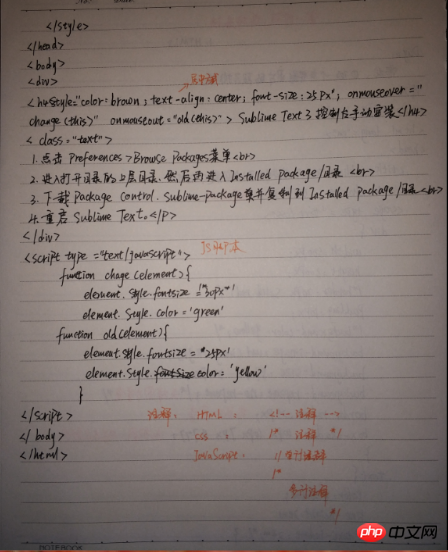 </style>
</head>
<body>
<div>
<h4 style="color=brown; text-align: center; font-size: 25px"; onmouseover="
change(this)" onmouseout="old(this)"> Sublime Text 3 控制台手动安装</h4>
< class="text">
1. 点击 Preferences > Browse Packages菜单<br>
2. 进入打开目录的上层目录,然后再进入Installed Package/目录 <br>
3. 下载 Package Control. Sublime-package 并复制到 Installed package/目录<br>
4. 重启 Sublime Text。</p>
</div>
JS脚本
<script type="text/javascript">
function chage(element){
element.style.fontsize = '30px'
element.style.color='green'
function old(element){
element.style.fontsize = '25px'
element.style.fontSize color='yellow'
}
</script>
注释: HTML : <!-- 注释 -->
</body>
css : /* 注释 */
</html>
JavaScript: //单行注释
/*
多行注释
*/
php中文网
NOTEBOOK